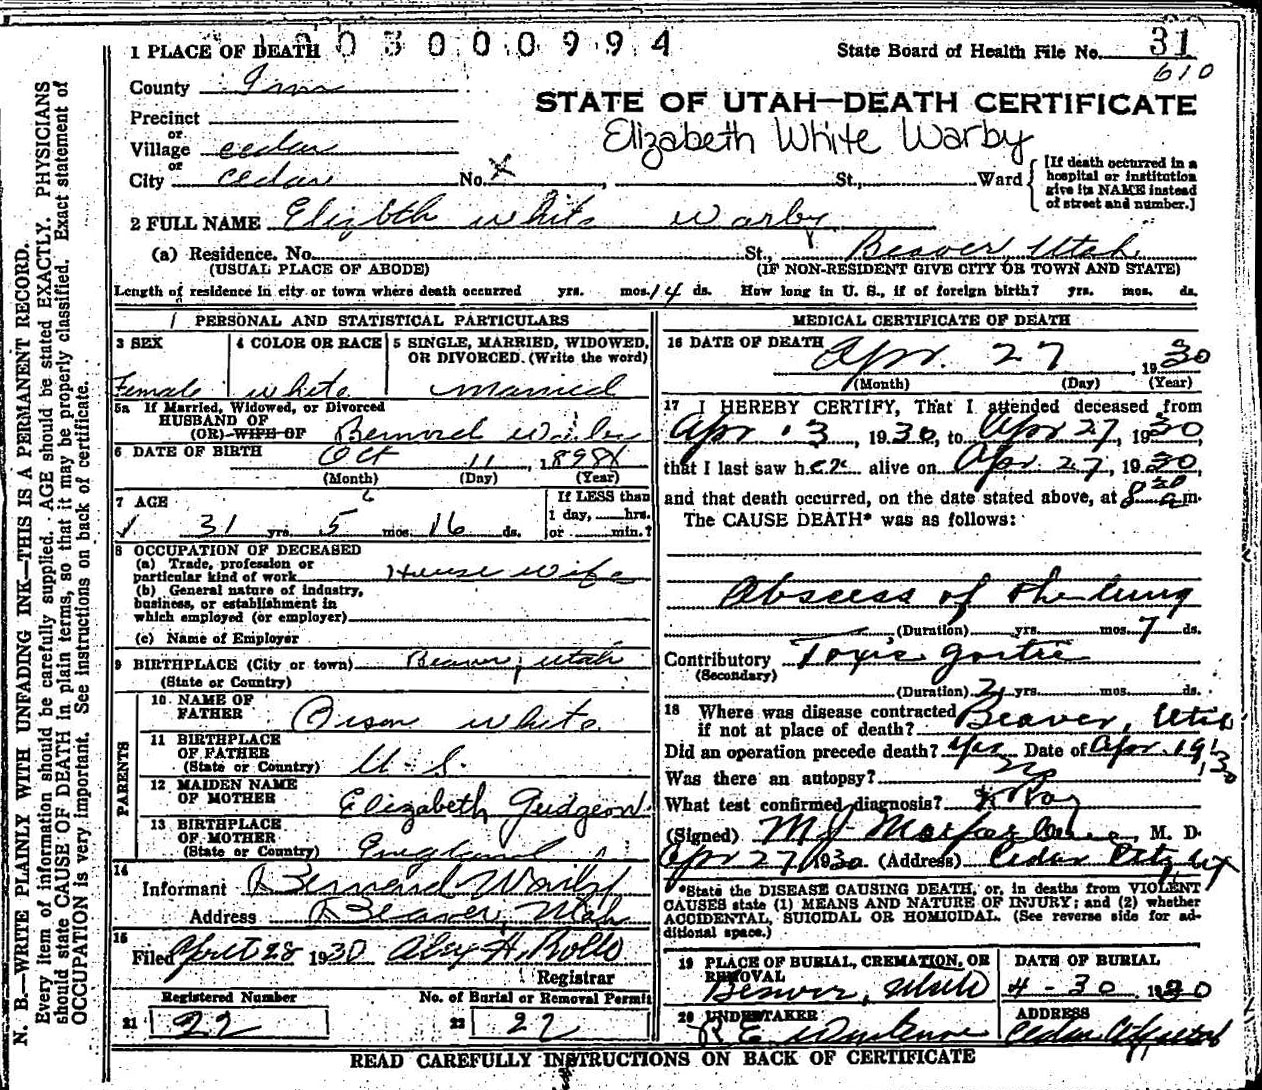 0 3 0 0 0 9 9 4
1 PLACE OF DEATH
State Board of Health File No. 31
610
County Iron
STATE OF UTAH—DEATH CERTIFICATE
Precinct
or
Elizabeth White Warby
Village cedar
or
City cedar No. X St., Ward
[If death occurred in a hospital or institution give its NAME instead of street and number.]
2 FULL NAME Elizbth white warby
(a) Residence. No. St., Beaver, Utah
(USUAL PLACE OF ABODE) (IF NON-RESIDENT GIVE CITY OR TOWN AND STATE)
Length of residence in city or town where death occurred yrs. mos. 14 ds. How long in U. S., if of foreign birth? yrs. mos. ds.
PERSONAL AND STATISTICAL PARTICULARS
3 SEX
Female
4 COLOR OR RACE
white
5 SINGLE, MARRIED, WIDOWED, OR DIVORCED. (Write the word)
married
5a If Married, Widowed, or Divorced
HUSBAND OF
(OR) WIFE OF Bernard Warby
6 DATE OF BIRTH Oct 11, 1898
(Month) (Day) (Year)
7 AGE
31 yrs. 5 mos. 16 ds.
If LESS than
1 day, hrs.
or min.?
8 OCCUPATION OF DECEASED
(a) Trade, profession or
particular kind of work House wife
(b) General nature of industry,
business, or establishment in
which employed (or employer)
(c) Name of Employer
9 BIRTHPLACE (City or town) Beaver, Utah
(State or Country)
PARENTS
10 NAME OF
FATHER Orson white
11 BIRTHPLACE
OF FATHER
(State or Country) U. S.
12 MAIDEN NAME
OF MOTHER Elizabeth Gudgeon
13 BIRTHPLACE
OF MOTHER
(State or Country) England
14
Informant Bernard Warby
Address Beaver, Utah
15
Filed April 28 1930
Registrar
Registered Number
21 22
No. of Burial or Removal Permit
22 22
MEDICAL CERTIFICATE OF DEATH
16 DATE OF DEATH Apr. 27, 1930
(Month) (Day) (Year)
17 I HEREBY CERTIFY, That I attended deceased from
Apr. 3, 1930, to Apr 27, 1930,
that I last saw her alive on Apr. 27, 1930,
and that death occurred, on the date stated above, at 8 30 a m.
The CAUSE DEATH* was as follows:
Abscess of the lung
(Duration) yrs. mos. 7 ds.
Contributory Toxic goitre
(Secondary)
(Duration) 2 yrs. mos. ds.
18 Where was disease contracted
if not at place of death? Beaver, Utah
Did an operation precede death? yes Date of Apr. 19, 30
Was there an autopsy? no
What test confirmed diagnosis? X Ray
(Signed) M J Macfarlane, M. D.
Apr 27, 1930 (Address) Cedar City Ut
*State the DISEASE CAUSING DEATH, or, in deaths from VIOLENT
CAUSES state (1) MEANS AND NATURE OF INJURY; and (2) whether
ACCIDENTAL, SUICIDAL OR HOMICIDAL. (See reverse side for ad-
ditional space.)
19 PLACE OF BURIAL, CREMATION, OR
REMOVAL
Beaver, Utah
DATE OF BURIAL
4-30, 1930
20 UNDERTAKER
ADDRESS
Cedar City Utah
READ CAREFULLY INSTRUCTIONS ON BACK OF CERTIFICATE
N. B.—WRITE PLAINLY WITH UNFADING INK—THIS IS A PERMANENT RECORD.
Every item of information should be carefully supplied. AGE should be stated EXACTLY. PHYSICIANS
should state CAUSE OF DEATH in plain terms, so that it may be properly classified. Exact statement of
OCCUPATION is very important. See instructions on back of certificate.